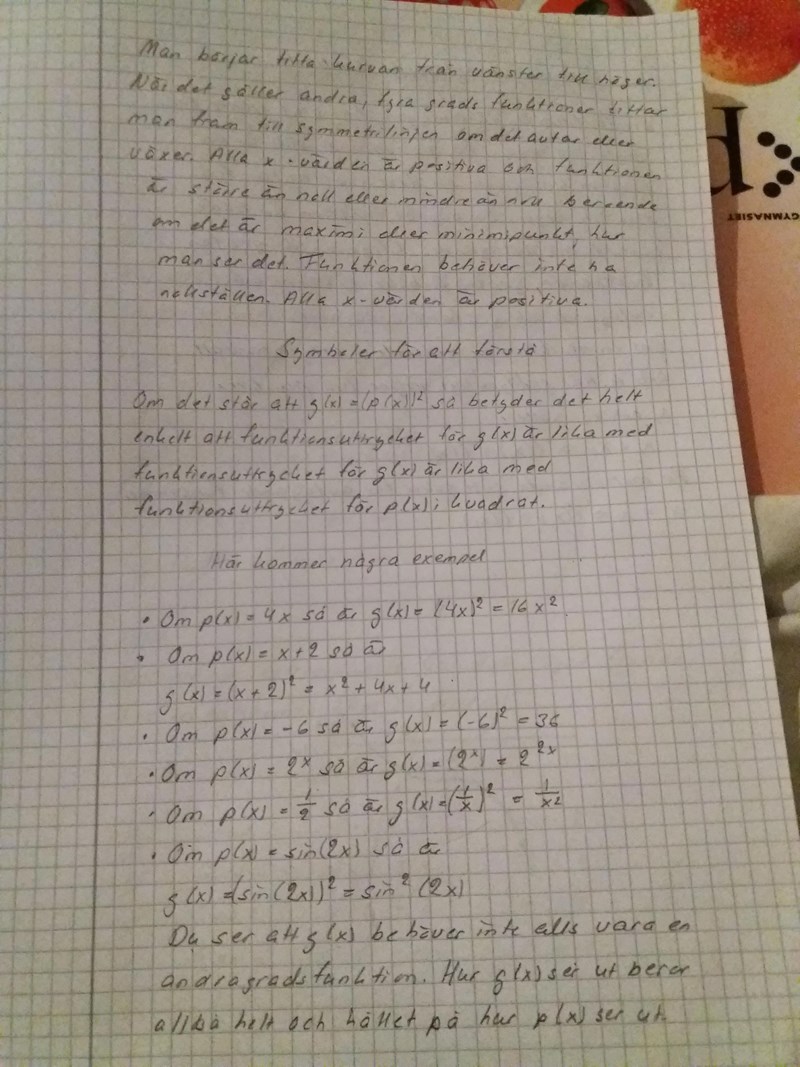 Man börjar titta kurvan från vänster till höger.
När det gäller andra, fyra grads funktioner tittar
man fram till symmetrilinjen om det avtar eller
växer. Alla x-värden är positiva och funktionen
är större än noll eller mindre än noll beroende
om det är maximi eller minimipunkt, hur
man ser det. Funktionen behöver inte ha
nollställen. Alla x-värden är positiva.
Symboler för att förstå
Om det står att g(x) = (p(x))² så betyder det helt
enkelt att funktionsuttrycket för g(x) är lika med
funktionsuttrycket för g(x) är lika med
funktionsuttrycket för p(x) i kvadrat.
Här kommer några exempel
• Om p(x) = 4x så är g(x) = (4x)² = 16x².
• Om p(x) = x+2 så är
g(x) = (x+2)² = x² + 4x + 4
• Om p(x) = -6 så är g(x) = (-6)² = 36
• Om p(x) = 2ˣ så är g(x) = (2ˣ) = 2²ˣ
• Om p(x) = 1/2 så är g(x) = (1/x)² = 1/x²
• Om p(x) = sin(2x) så är
g(x) = (sin(2x))² = sin² (2x)
Du ser att g(x) behöver inte alls vara en
andragradsfunktion. Hur g(x) ser ut beror
alltså helt och hållet på hur p(x) ser ut.
GYMNASIET